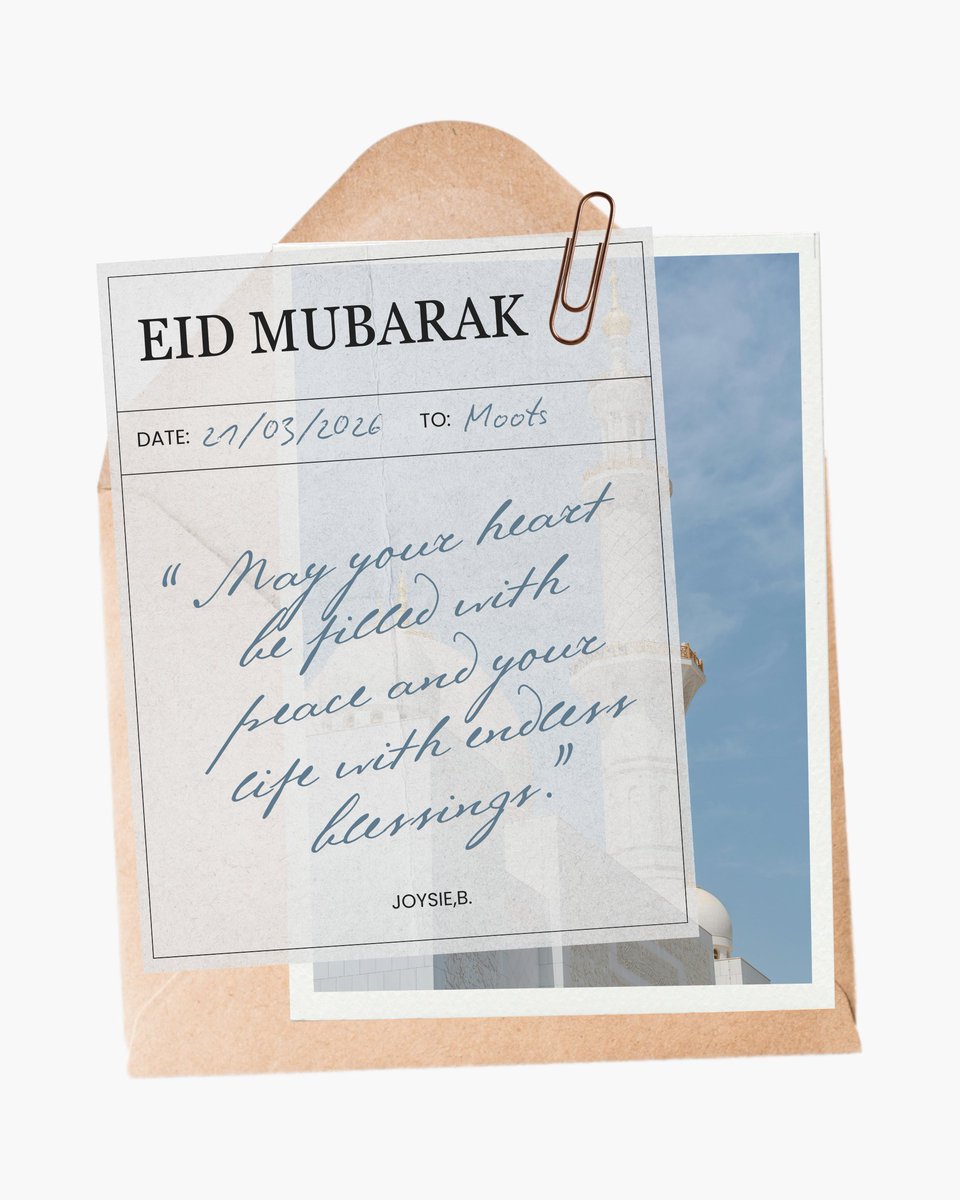 EID MUBARAK
DATE: 21/03/2026 TO: Moots
“ May your heart
be filled with
peace and your
life with endless
blessings.”
JOYSIE,B.